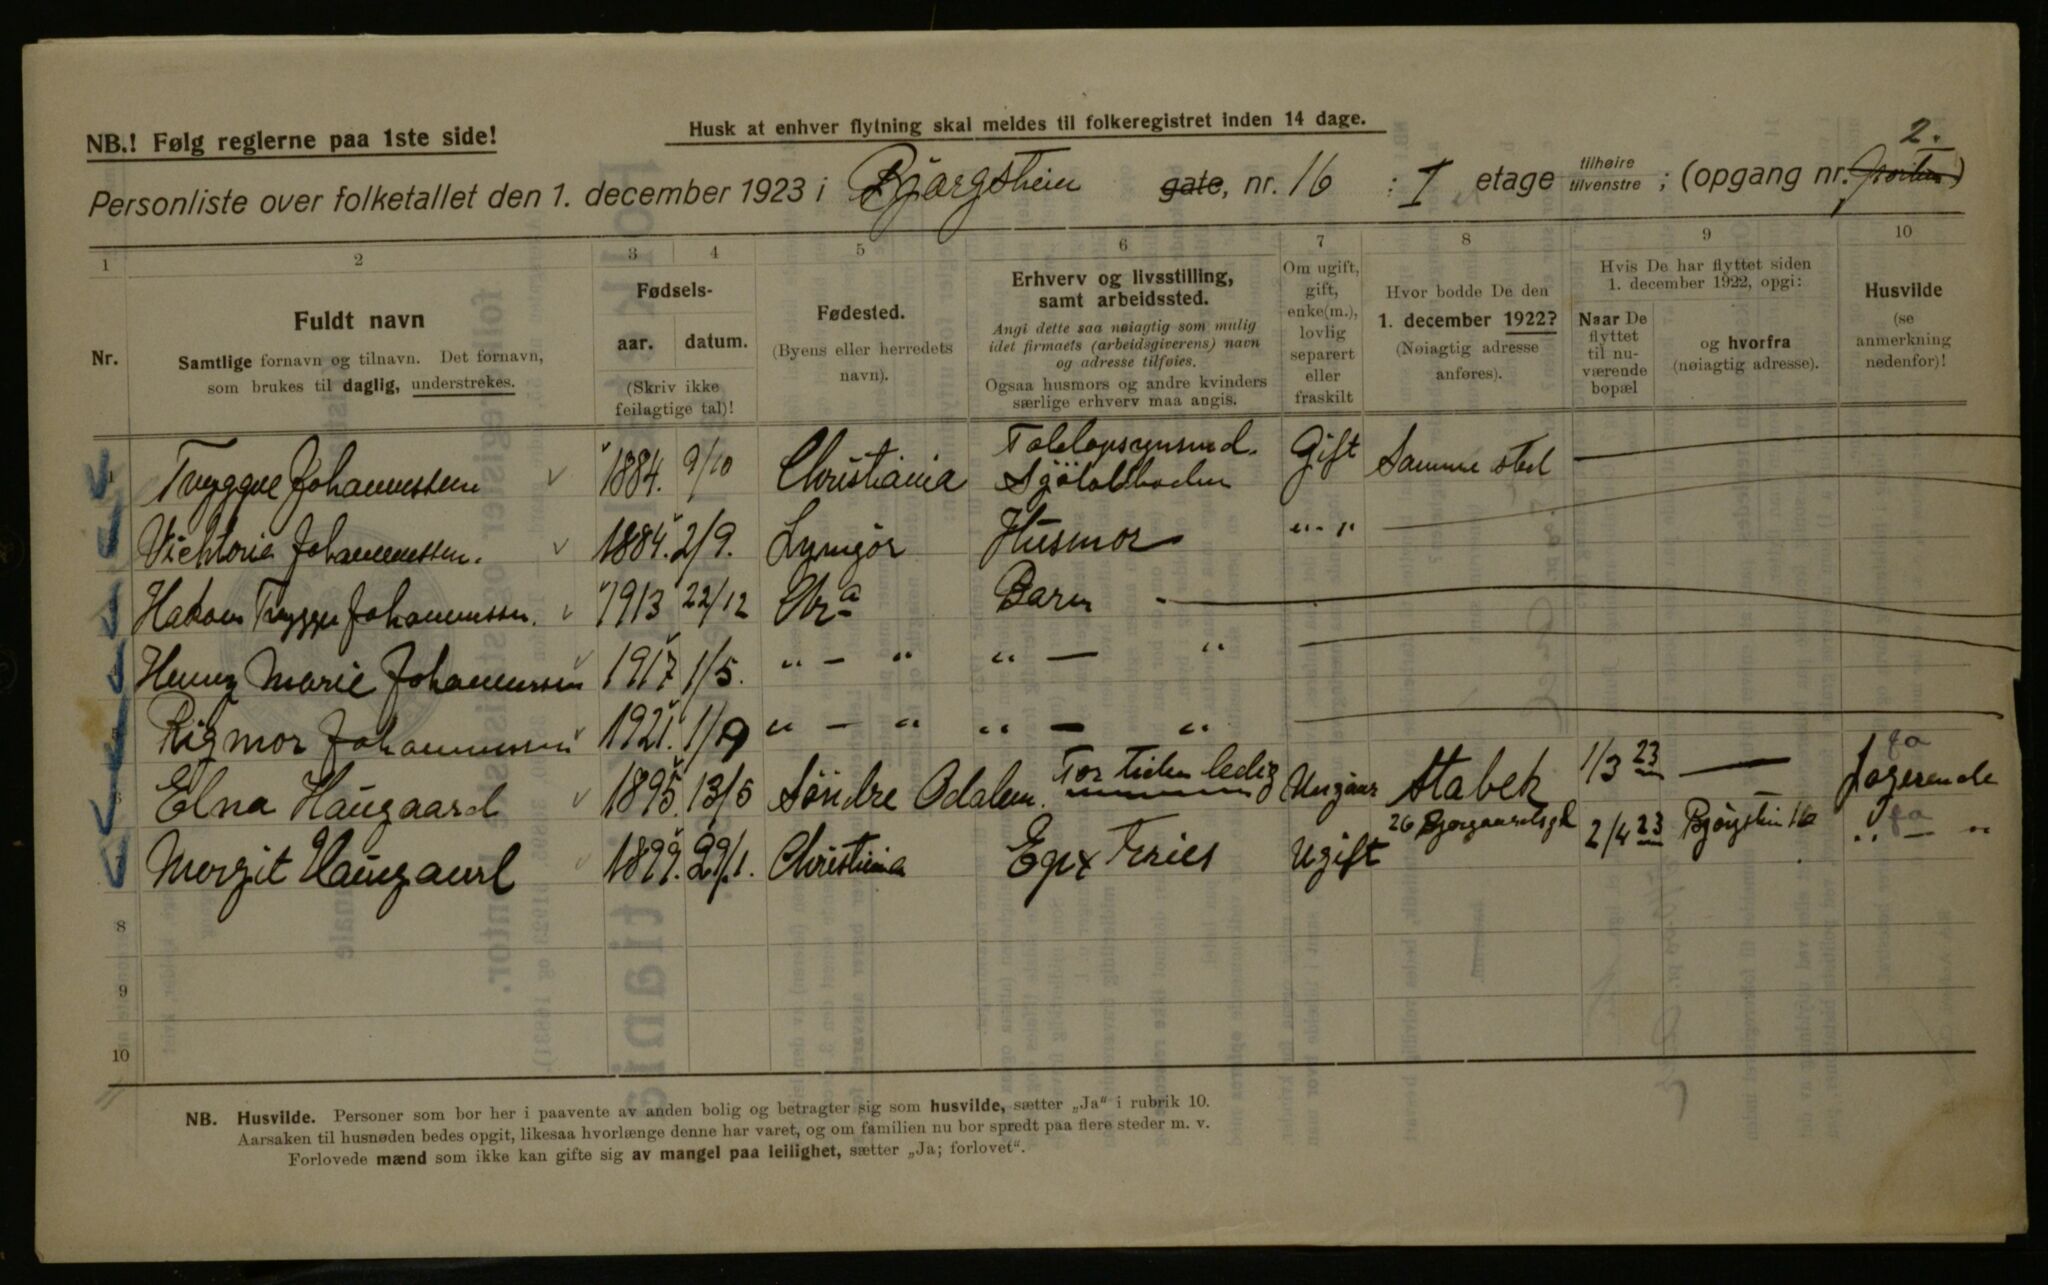 NB.! Følg reglerne paa 1ste side!
Husk at enhver flytning skal meldes til folkeregistret inden 14 dage.
2.
Personliste over folketallet den 1. december 1923 i Bjørgstien gate, nr. 16 : I etage tilhøire tilvenstre ; (opgang nr. )
1 2 3 4 5 6 7 8 9 10
Nr.
Fuldt navn
Samtlige fornavn og tilnavn. Det fornavn,
som brukes til daglig, understrekes.
Fødsels-
aar. datum.
(Skriv ikke
feilagtige tal)!
Fødested.
(Byens eller herredets
navn).
Erhverv og livsstilling,
samt arbeidssted.
Angi dette saa nøiagtig som mulig
idet firmaets (arbeidsgiverens) navn
og adresse tilføies.
Ogsaa husmors og andre kvinders
særlige erhverv maa angis.
Om ugift,
gift,
enke(m.),
lovlig
separert
eller
fraskilt
Hvor bodde De den
1. december 1922?
(Nøiagtig adresse
anføres).
Hvis De har flyttet siden
1. december 1922, opgi:
Naar De
flyttet
til nu-
værende
bopæl
og hvorfra
(nøiagtig adresse).
Husvilde
(se
anmerkning
nedenfor)!
Trygve Johannessen 1884. 9/10 Christiania Toldopsynsmd. Gift Samme sted
Sjötoldboden
Vicktoria Johannessen. 1884. 2/9. Lyngör Husmor " - "
Hakon Trygve Johannessen. 1913 22/12 Chr a Barn
Henny Marie Johannessen 1917 1/5. " - " " - "
Rigmor Johannessen 1921. 1/9 " - " " - "
Elna Haugaard 1895. 13/5 Söndre Odalen. For tiden ledig Stabek 1/3 23 — Ja Logerende
Margit Haugaard 1899. 29/1. Christiania Ugift 26 2/4 23 Bjørgstien 16 Ja " - "
8
9
10
NB. Husvilde. Personer som bor her i paavente av anden bolig og betragter sig som husvilde, sætter „Ja“ i rubrik 10.
Aarsaken til husnøden bedes opgit, likesaa hvorlænge denne har varet, og om familien nu bor spredt paa flere steder m. v.
Forlovede mænd som ikke kan gifte sig av mangel paa leilighet, sætter „Ja; forlovet“.